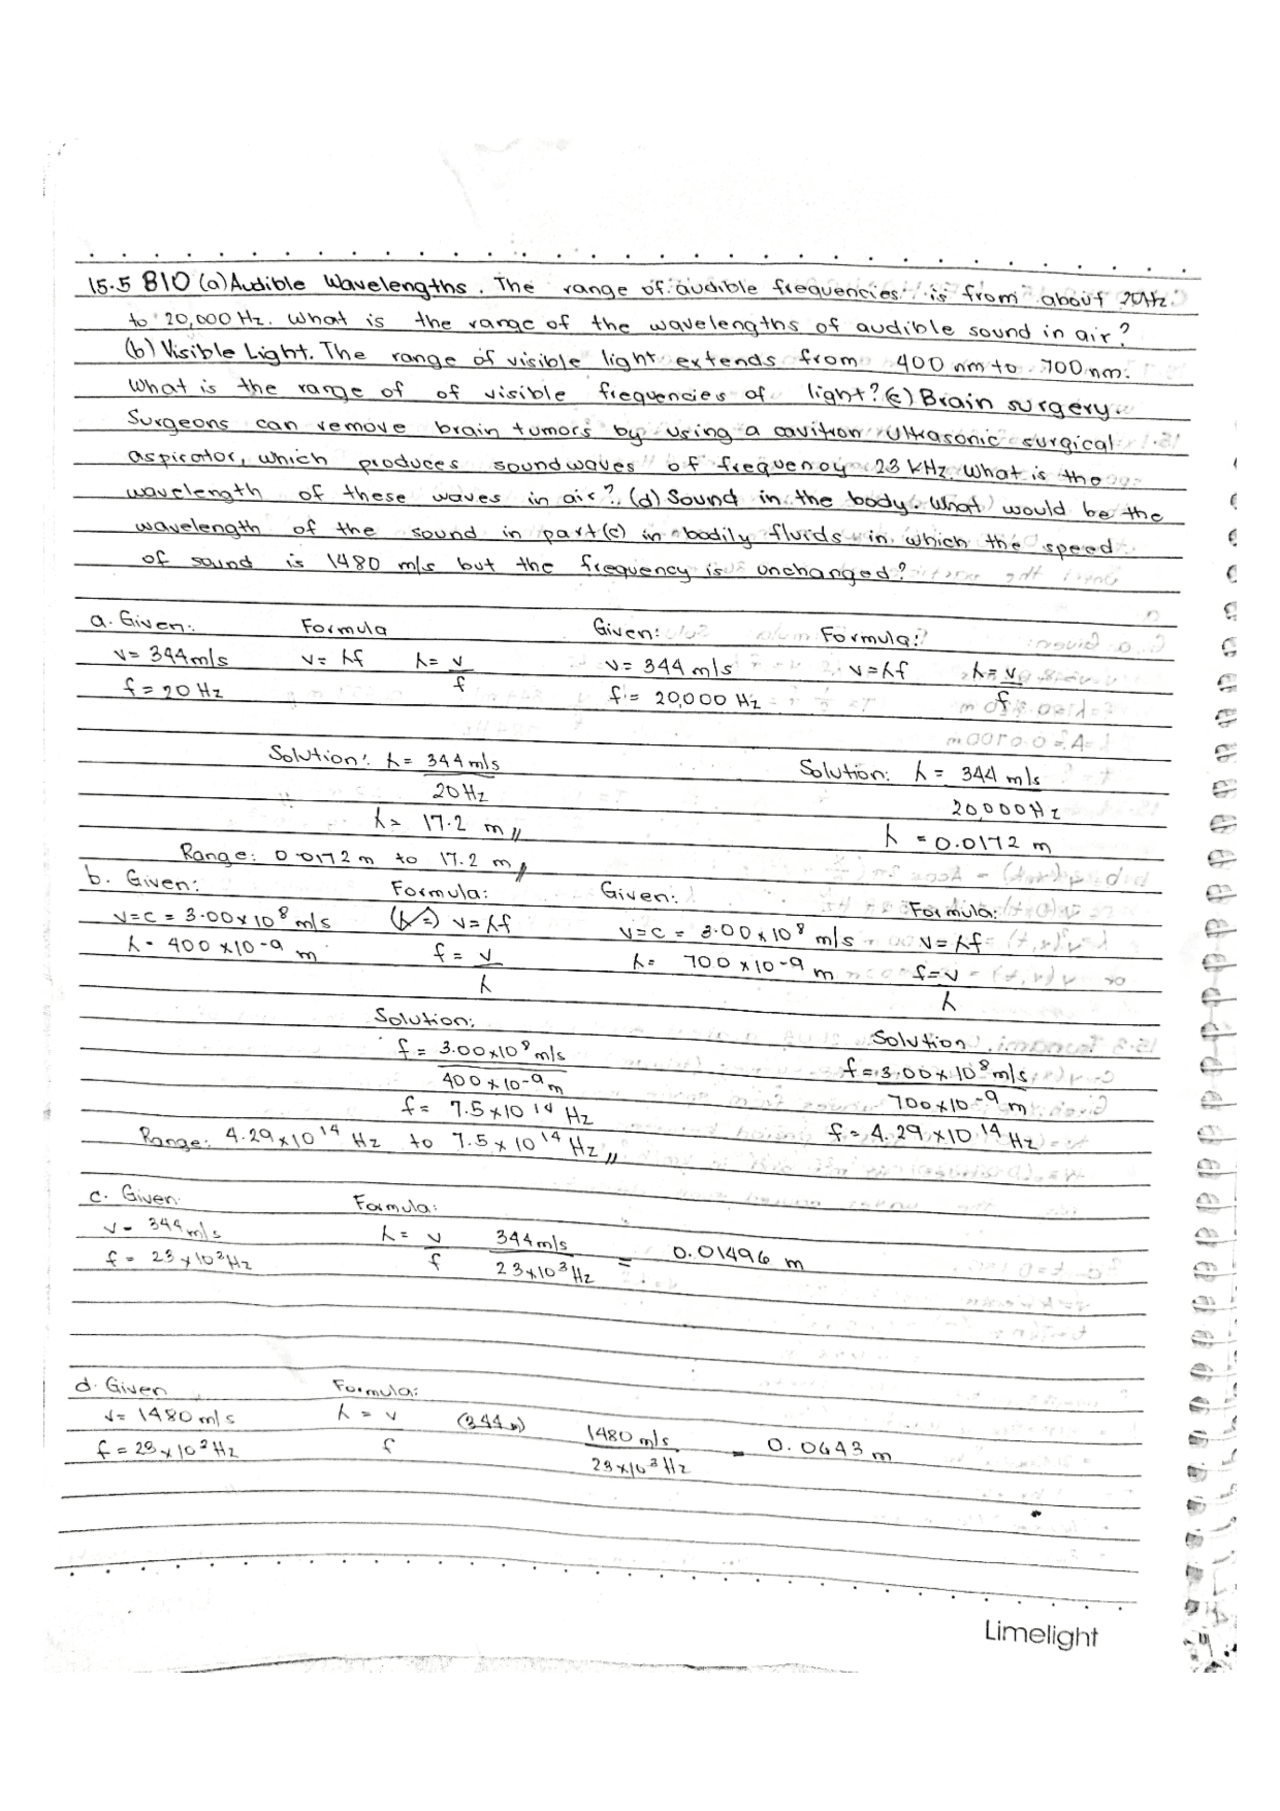 15.5 BIO (a) Audible Wavelengths. The range of audible frequencies is from about 20Hz
to 20,000 Hz. What is the range of the wavelengths of audible sound in air?
(b) Visible Light. The range of visible light extends from 400 nm to 700 nm.
What is the range of of visible frequencies of light? (c) Brain surgery
Surgeons can remove brain tumors by using a cavitron Ultrasonic surgical
aspirator, which produces sound waves of frequency 23 kHz. What is the
wavelength of these waves in air? (d) Sound in the body. What would be the
wavelength of the sound in part (c) in bodily fluids in which the speed
of sound is 1480 m/s but the frequency is unchanged?
a. Given: Formula Given: Formula:
v = 344 m/s v = λf λ = v/f v = 344 m/s v = λf λ = v/f
f = 20 Hz f = 20,000 Hz
Solution: λ = 344 m/s Solution: λ = 344 m/s
20 Hz 20,000 Hz
λ = 17.2 m // λ = 0.0172 m
Range: 0.0172 m to 17.2 m //
b. Given: Formula: Given: Formula:
v = c = 3.00 x 10^8 m/s (λ =) v = λf v = c = 3.00 x 10^8 m/s v = λf
λ = 400 x 10^-9 m f = v/λ λ = 700 x 10^-9 m f = v/λ
Solution: Solution
f = 3.00 x 10^8 m/s f = 3.00 x 10^8 m/s
400 x 10^-9 m 700 x 10^-9 m
f = 7.5 x 10^14 Hz f = 4.29 x 10^14 Hz
Range: 4.29 x 10^14 Hz to 7.5 x 10^14 Hz //
c. Given Formula:
v = 344 m/s λ = v/f 344 m/s / 23 x 10^3 Hz = 0.01496 m
f = 23 x 10^3 Hz
d. Given Formula:
v = 1480 m/s λ = v/f 1480 m/s / 23 x 10^3 Hz = 0.0643 m
f = 23 x 10^3 Hz
Limelight